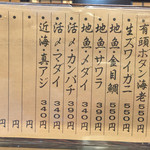 有頭ボタン海老 550円
生ズワイガニ 550円
地魚・金目鯛 550円
地魚・サワラ 390円
地魚・メダイ 340円
活〆・カンパチ 390円
活〆・マダイ 340円
近海・真アジ 340円